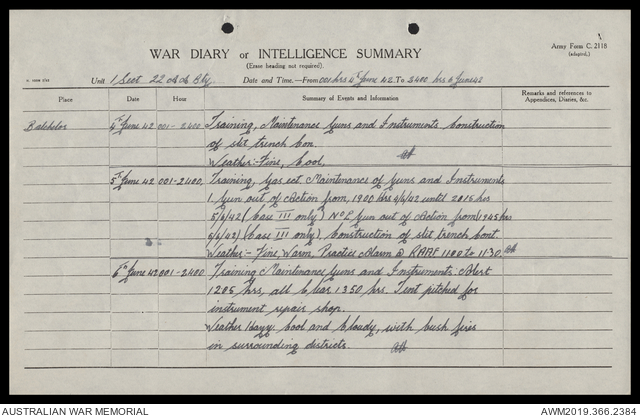 Army Form C. 2118
(adapted.)
WAR DIARY or INTELLIGENCE SUMMARY
(Erase heading not required).
Unit 1 Sect 22 A A Bty. Date and Time.—From 001 hrs 4th June 42 To 2400 hrs 6 June 42
Place Date Hour Summary of Events and Information Remarks and references to
Appendices, Diaries, &c.
Batchelor 4th June 42 001-2400 Training, Maintenance Guns and Instruments. Construction
of slit trench Con.
Weather:- Fine, Cool,
5th June 42 001-2400, Training, Gas ect. Maintenance of Guns and Instruments
1. Gun out of Action from, 1900 Hrs 4/6/42 until 2015 hrs
5/6/42 (Case III only) No 2 Gun out of Action from 1945 hrs
5/6/42) (Case III only), Construction of slit trench Cont
Weather:- Fine, Warm, Practice Alarm @ RAAF 1100 to 1130.
6th June 42 001-2400 Training Maintenance Guns and Instruments. Alert
1205 hrs, all Clear 1350 hrs. Tent pitched for
instrument repair shop.
Weather Hazy Cool and Cloudy, with bush fires
in surrounding districts.
AUSTRALIAN WAR MEMORIAL AWM2019.366.2384